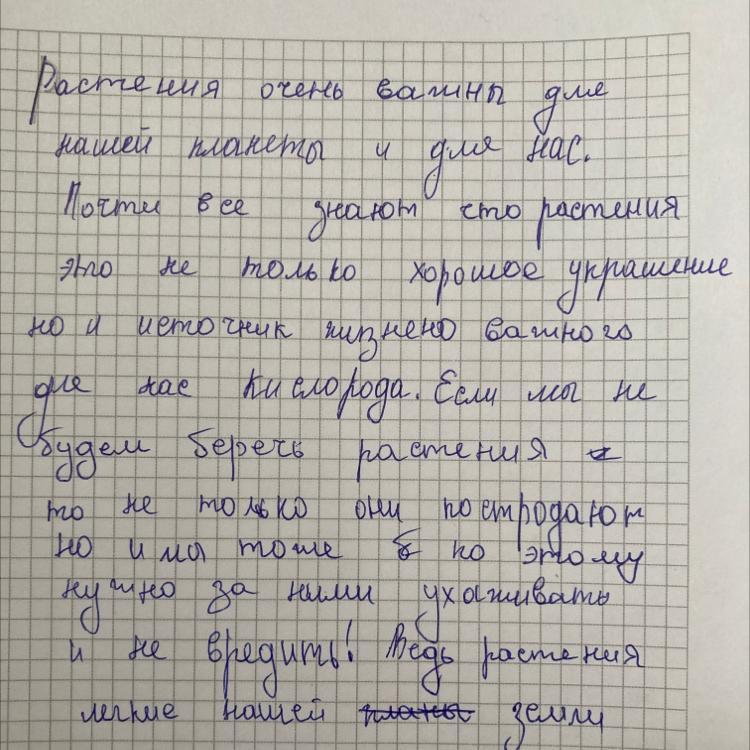 Растения очень важны для
нашей планеты и для нас.
Почти все знают что растения
это не только хорошое украшение
но и источник жизнено важного
для нас кислорода. Если мы не
будем беречь растения
то не только они пострoдают
но и мы тоже по этому
нужно за ними ухаживать
и не вредить! Ведь растения
легкие нашей земли